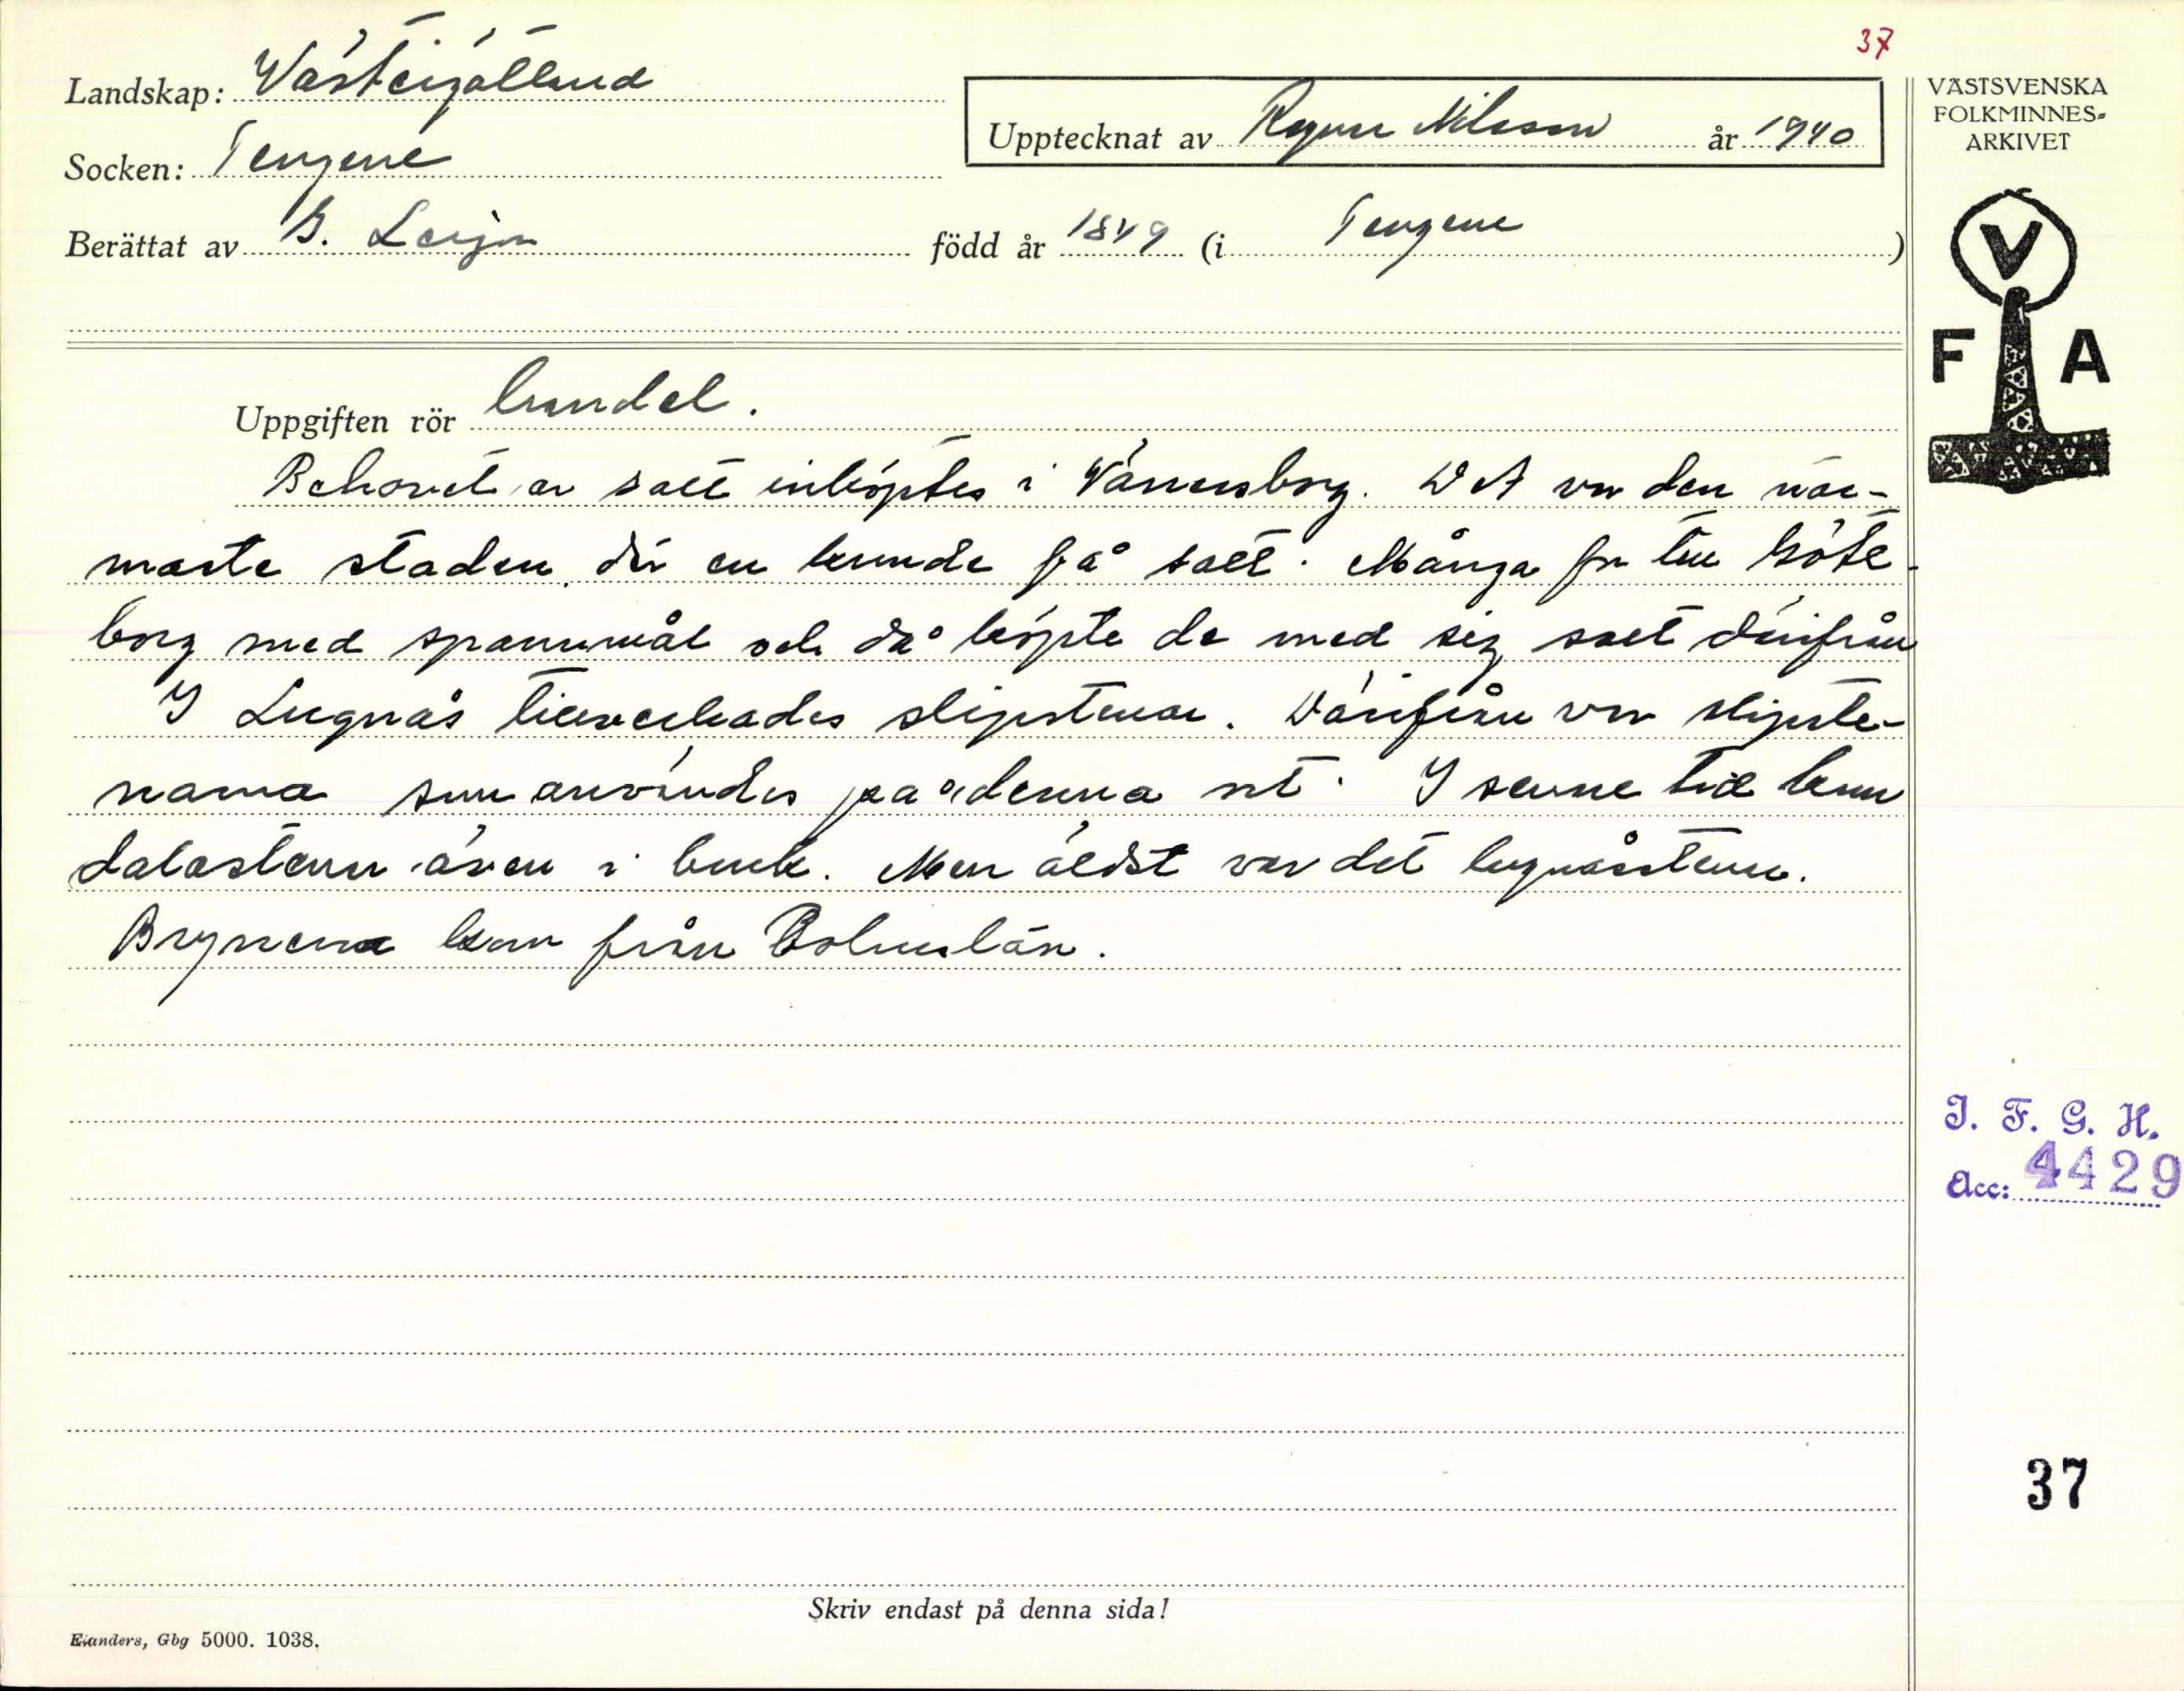 37
Landskap: Västergötland
Upptecknat av Ragnar Nilsson år 1940
Socken: Tengene
Berättat av G. Leijon född år 1849 (i Tengene)
VÄSTSVENSKA
FOLKMINNES=
ARKIVET
V
F A
Uppgiften rör handel.
Behovet av salt inköptes i Vänersborg. Det var den när-
maste staden, där en kunde få salt. Många for till Göte-
borg med spannmål och då köpte de med sig salt därifrån
I Lugnås tillverkades slipstenar. Därifrån var slipste-
narna som användes på denna ort. I senare tid kom
dalasten även i bruk. Men äldst var det lugnåsstenen.
Brynena kom från Bohuslän.
I. F. G. H.
Acc: 4429
37
Skriv endast på denna sida!
Elanders, Gbg 5000. 1038.